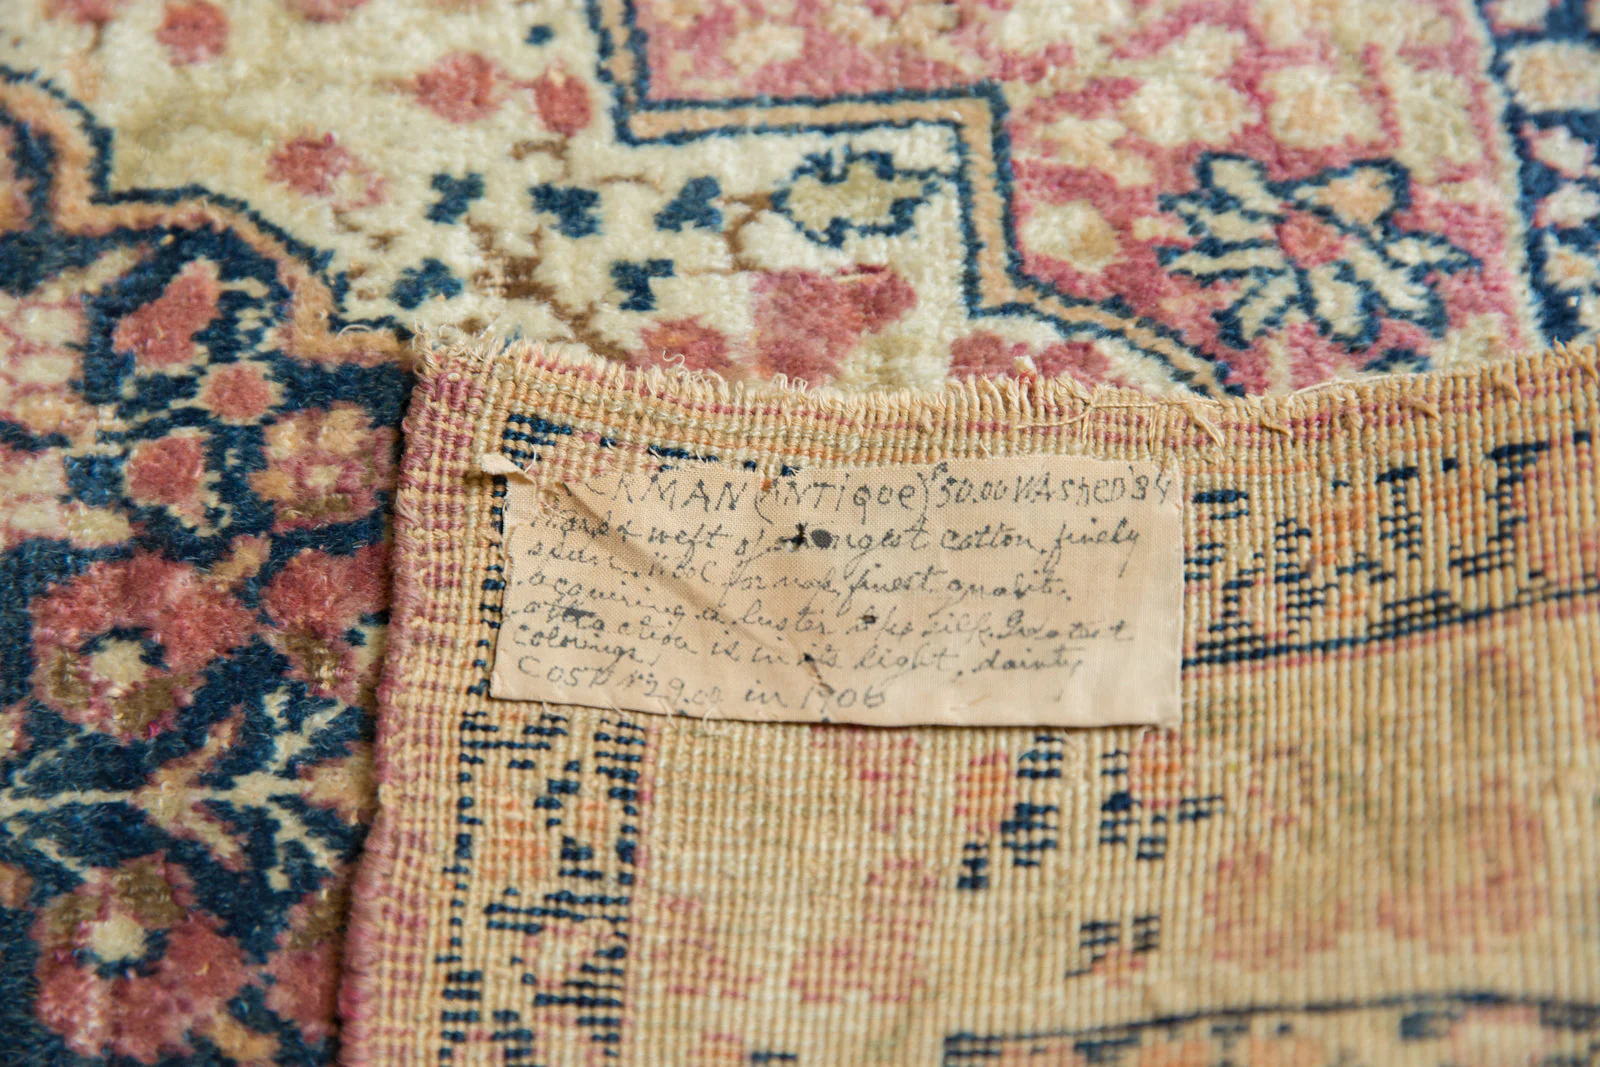 KERMAN (ANTique) $50.00 WAshED '34
Warp & weft of strongest cotton, finely
spun. Wool for nap, finest quality,
acquiring a luster like silk. Greatest
attraction is in its light, dainty
Colorings.
COST $29.00 in 1906